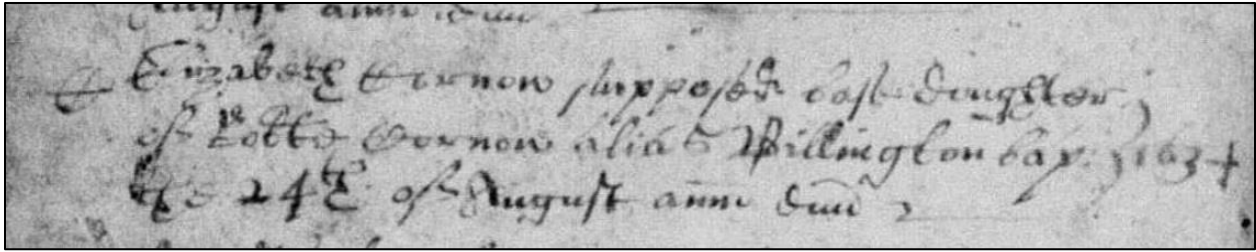 August anno dni
Elizabeth Vernon supposed base doughter
of Vernon alias Willington bap. 1634
the 24th of August anno dni